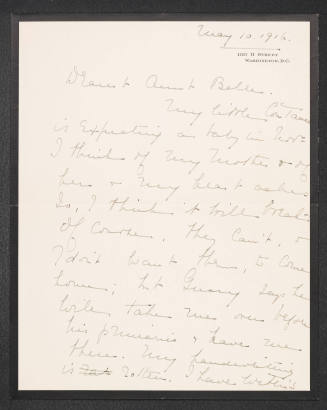 May 10. 1916.
1227 H STREET
WASHINGTON, D.C.
Dearest Aunt Belle.
My little Constance
is expecting a baby in Nov-
I think of my Mother & of
her & my heart aches
so, I think it will break-
Of course, they can't, &
I don't want them, to come
home; but says he
will take me over before
his & leave me
there. My handwriting
is rotten. I have